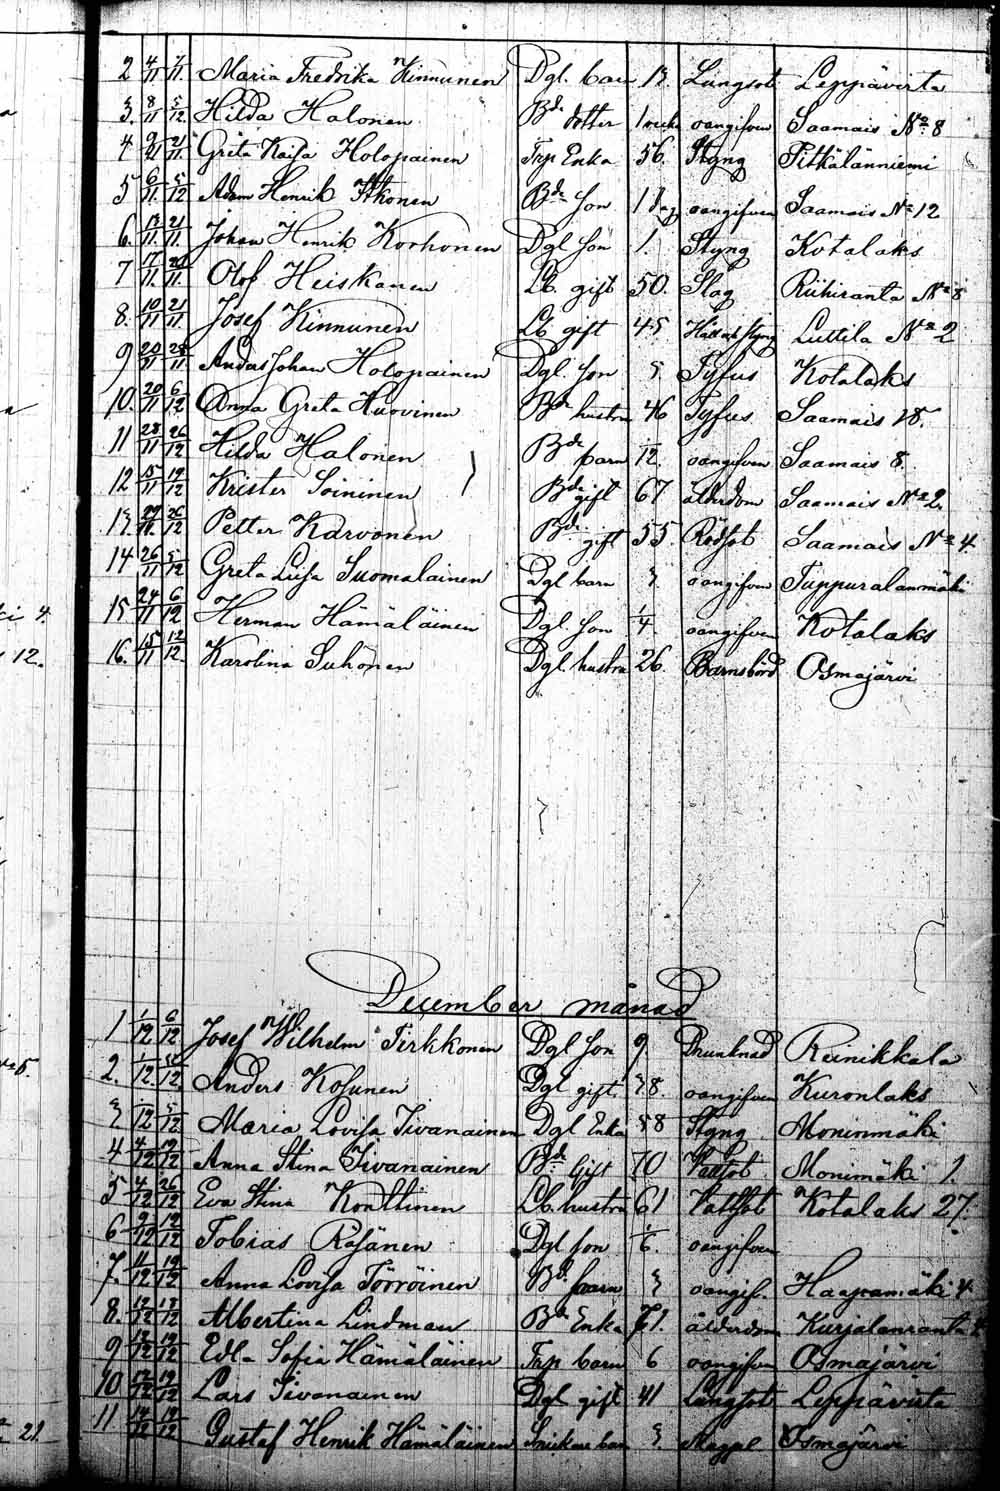 2 4/11 /11. Maria Fredrika Kinnunen Dgl. barn 13. Lungsot Leppävirta
3. 8/11 5/12 Hilda Halonen Bde dotter 1 vecka oangifven Saamais No 8
4 9/11 21/11. Greta Kaisa Holopainen Trp Enka 56. Styng Pitkälänniemi
5 6/11. 5/12 Adam Henrik Itkonen Bde son 1 dag oangifven Saamais No 12
6. 13/11. 21/11. Johan Henrik Korhonen Dgl son 1. Styng Kotalaks
7 17/11. 21/11. Olof Heiskanen Lb. gift 50. Slag Riihiranta No 8
8. 10/11 21/11. Josef Kinnunen Lb gift 45 Håll och styng Luttila No 2
9 20/11 28/11. Anders Johan Holopainen Dgl. son 5. Tyfus Kotalaks
10. 20/11 6/12 Anna Greta Huovinen Bde hustru 46 Tyfus Saamais 18.
11 28/11 26/12 Hilda Halonen Bde barn 1/12. oangifven Saamais 8.
12 15/11 19/12 Krister Soininen Bde gift 67 ålderdom Saamais No 2.
13 29/11. 26/12 Petter Karvonen Bde gift 55. Rödsot Saamais No 4
14 26/11 5/12 Greta Lisa Suomalainen Dgl barn 3. oangifven Tuppuralanmäki
15 24/11 6/12 Herman Hämäläinen Dgl. son 1/4. oangifven Kotalaks
16. 15/11 12/12. Karolina Suhonen Dgl hustru 26. Barnsbörd Osmajärvi
December månad
1 1/12 6/12 Josef Wilhelm Tirkkonen Dgl son 9. Drunknad Reinikkala
2. 1/12. /12 Anders Kosunen Dgl gift 38. oangifven Kuronlaks
3 /12 5/12 Maria Lovisa Iivanainen Dgl Enka 58 Styng Moninmäki
4 4/12 19/12 Anna Stina Iivanainen Bde Gift 70 Vattsot Monimäki 1.
5 4/12 26/12 Eva Stina Konttinen Lb. hustru 61 Vattsot Kotalaks 27.
6 9/12 19/12 Tobias Räsänen Dgl son 1/6. oangifven
7. 11/12 19/12 Anna Lovisa Törröinen Bde barn 3 oangif. Haapamäki 4
8. 12/12 18/12 Albertina Lindman Bde Enka 71. ålderdom Kurjalanranta
9 12/12 19/12 Edla Sofia Hämäläinen Trp barn 6 oangifven Osmajärvi
10 12/12 19/12 Lars Iivanainen Dgl gift 41 Lungsot Leppävirta
11 14/12 19/12 Gustaf Henrik Hämäläinen Snickare barn 3. Osmajärvi
4.
12.
21.